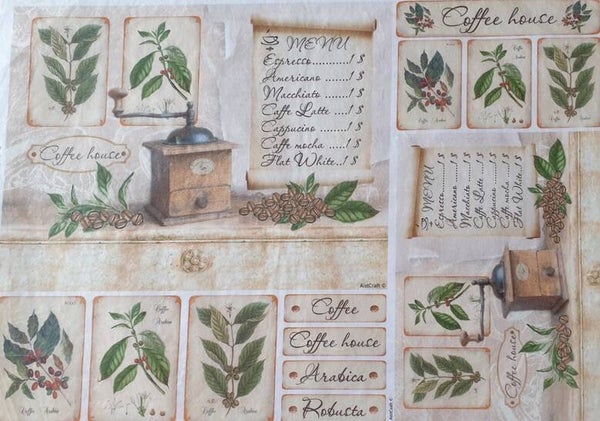 MENU
Espresso..........1 $
Americano .....1 $
Macchiato ......1 $
Caffe Latte ....1 $
Cappucino ......1 $
Caffe mocha ...1 $
Flat White..1 $
Coffee house
AistCraft ©
Coffee house
MENU
Espresso..........1 $
Americano .....1 $
Macchiato ......1 $
Caffe Latte ....1 $
Cappucino ......1 $
Caffe mocha ...1 $
Flat White..1 $
Coffee house
Coffee
Coffee house
Arabica
Robusta
AistCraft ©